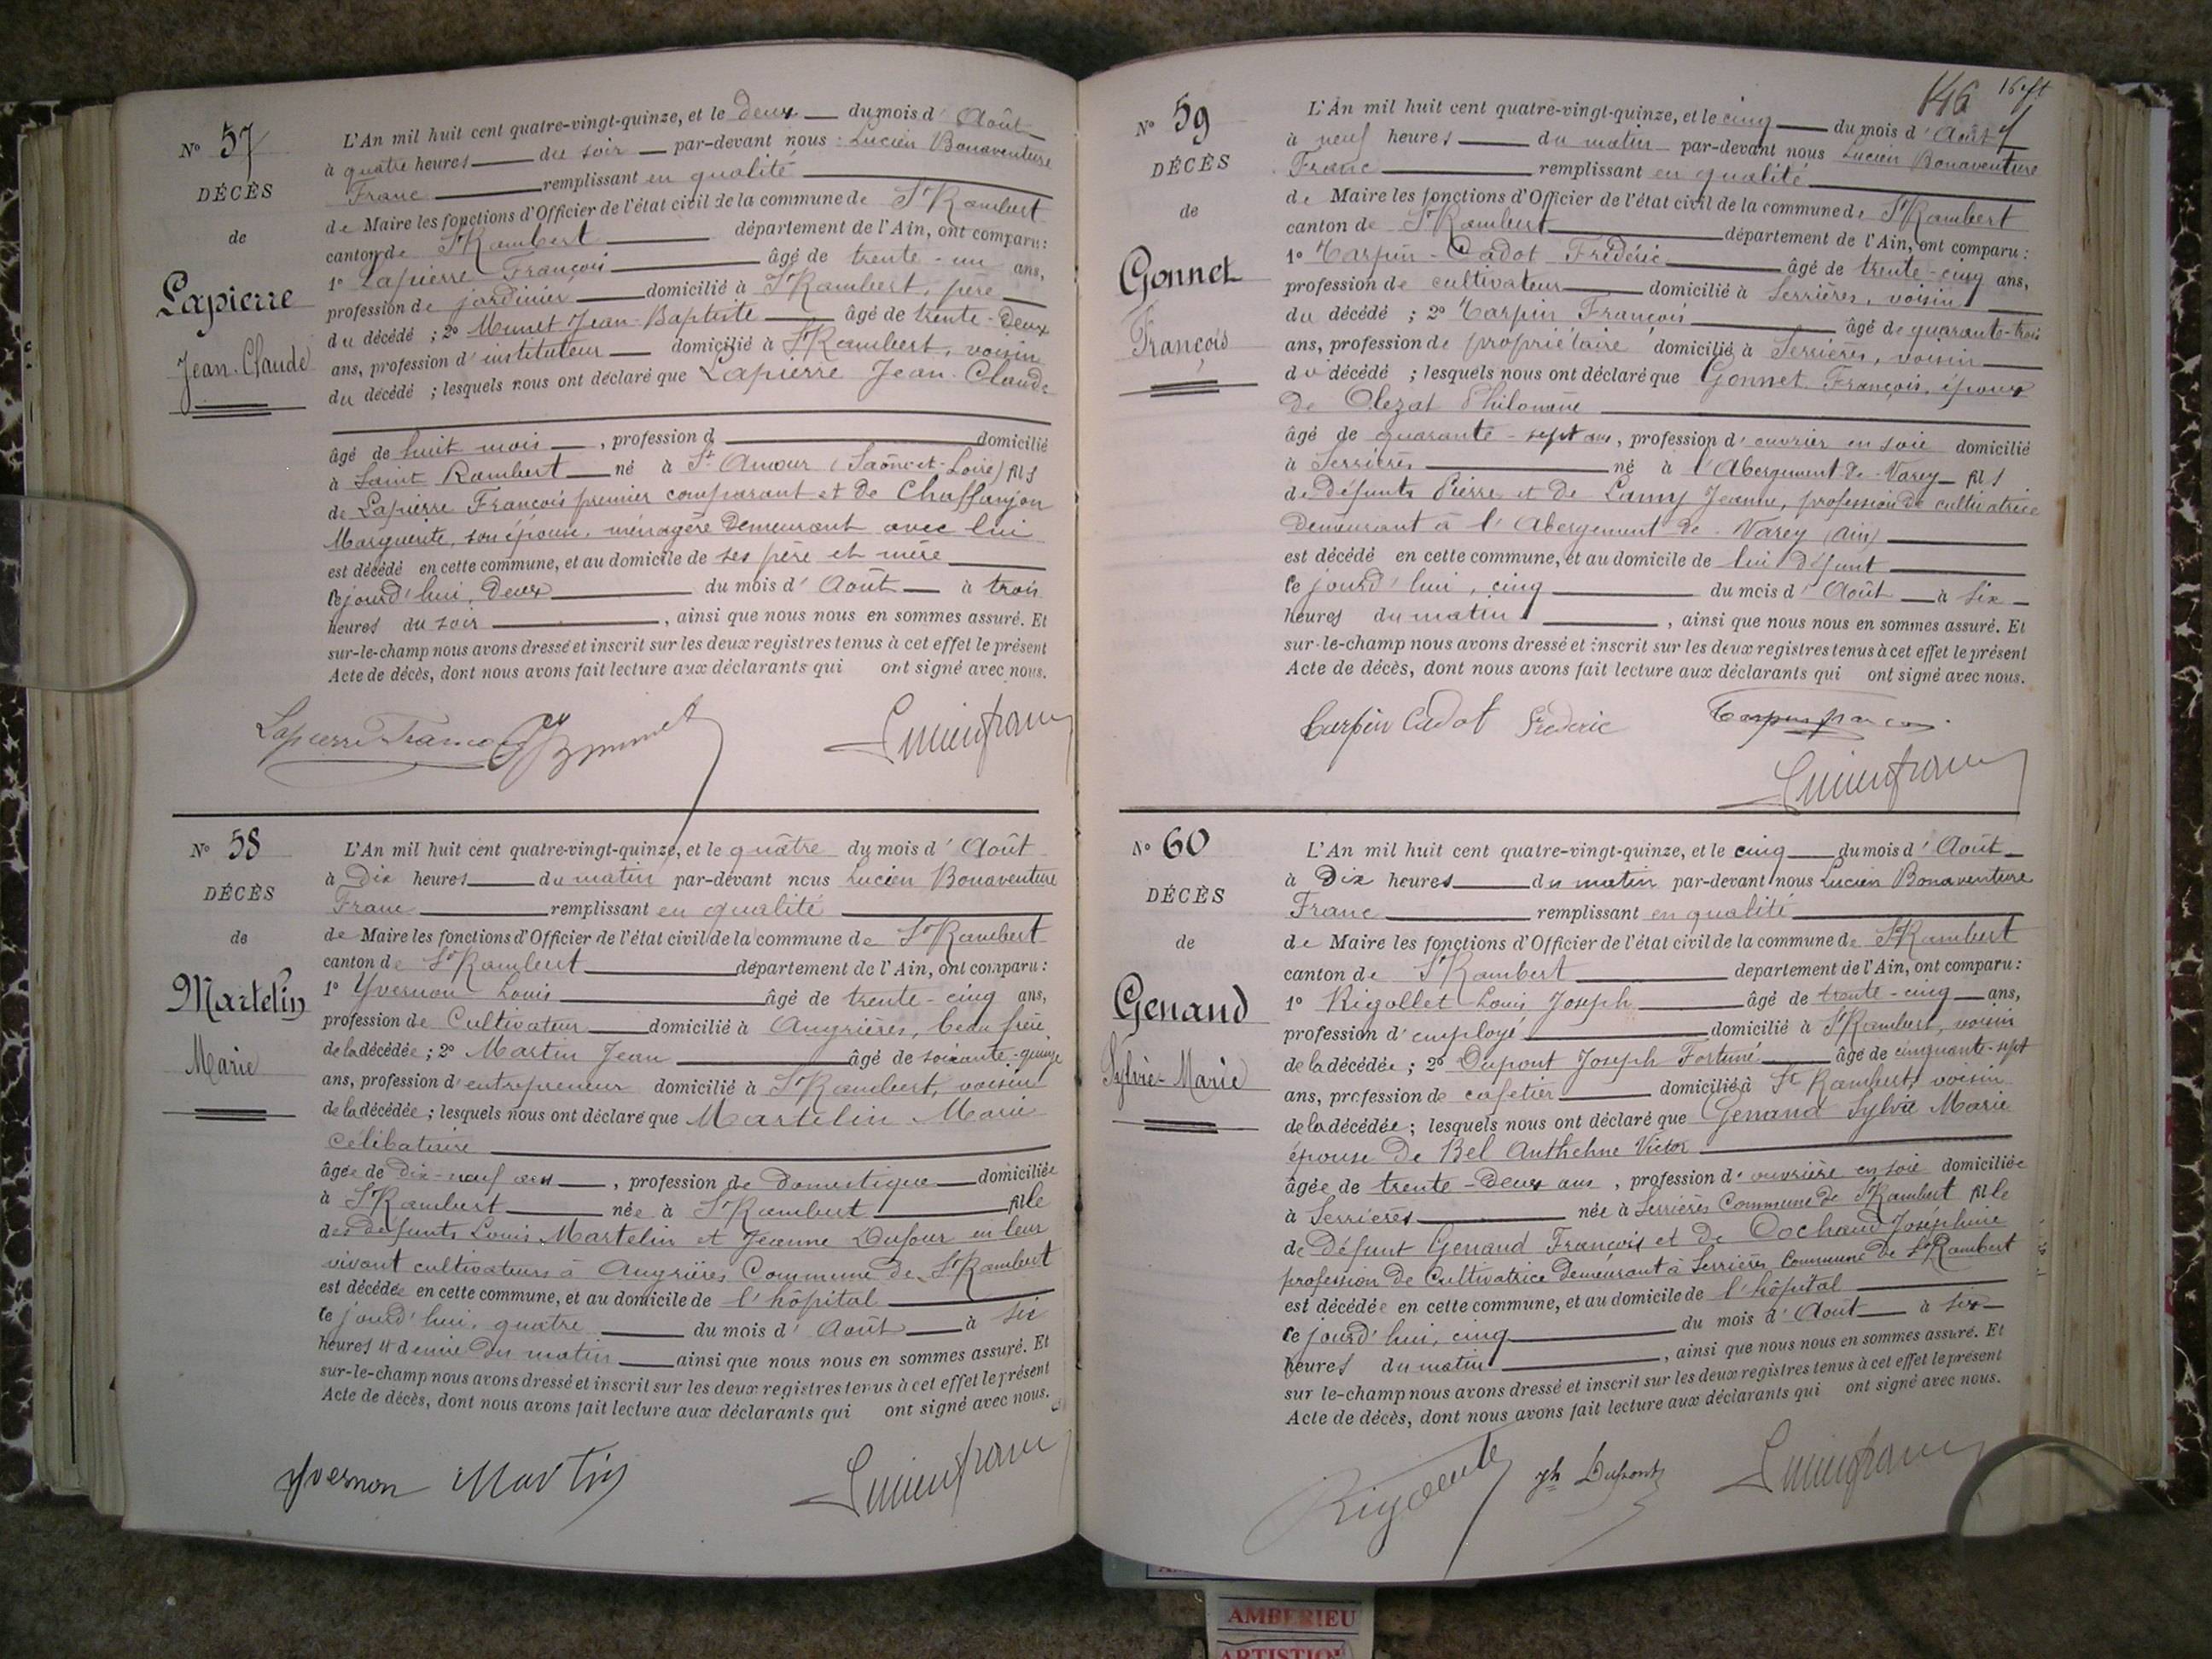 N° 57
DÉCÈS
de
Lapierre
Jean-Claude
L'An mil huit cent quatre-vingt-quinze, et le deux du mois d'Août
à quatre heures du soir par-devant nous : Lucien Bonaventure
Franc remplissant en qualité
de Maire les fonctions d'Officier de l'état civil de la commune de St Rambert
canton de St Rambert département de l'Ain, ont comparu :
1° Lapierre François âgé de trente-un ans,
profession de jardinier domicilié à St Rambert, père
du décédé ; 2° Munet Jean-Baptiste âgé de trente-deux
ans, profession d'instituteur domicilié à St Rambert, voisin
du décédé ; lesquels nous ont déclaré que Lapierre Jean-Claude
âgé de huit mois, profession d domicilié
à Saint Rambert né à St Amour (Saône-et-Loire) fils
de Lapierre François premier comparant et de Chaffanjon
Marguerite, son épouse, ménagère demeurant avec lui
est décédé en cette commune, et au domicile de ses père et mère
ce jourd'hui, deux du mois d'Août à trois
heures du soir, ainsi que nous nous en sommes assuré. Et
sur-le-champ nous avons dressé et inscrit sur les deux registres tenus à cet effet le présent
Acte de décès, dont nous avons fait lecture aux déclarants qui ont signé avec nous.
Lapierre François
Lucien franc
N° 58
DÉCÈS
de
Martelin
Marie
L'An mil huit cent quatre-vingt-quinze, et le quatre du mois d'Août
à Dix heures du matin par-devant nous Lucien Bonaventure
Franc remplissant en qualité
de Maire les fonctions d'Officier de l'état civil de la commune de St Rambert
canton de St Rambert département de l'Ain, ont comparu :
1° Yvernon Louis âgé de trente-cinq ans,
profession de Cultivateur domicilié à Angrières, beau frère
de la décédée ; 2° Martin Jean âgé de soixante-quinze
ans, profession d'entrepreneur domicilié à St Rambert, voisin
de la décédée ; lesquels nous ont déclaré que Martelin Marie
célibataire
âgée de dix-neuf ans, profession de domestique domiciliée
à St Rambert née à St Rambert fille
des défunts Louis Martelin et Jeanne Dufour en leur
vivant cultivateurs à Angrières Commune de St Rambert
est décédée en cette commune, et au domicile de l'hôpital
ce jourd'hui, quatre du mois d'Août à six
heures et demie du matin ainsi que nous nous en sommes assuré. Et
sur-le-champ nous avons dressé et inscrit sur les deux registres tenus à cet effet le présent
Acte de décès, dont nous avons fait lecture aux déclarants qui ont signé avec nous.
Yvernon Martin Lucien franc
146
N° 59
DÉCÈS
de
Gonnet
François
L'An mil huit cent quatre-vingt-quinze, et le cinq du mois d'Août
à neuf heures du matin par-devant nous Lucien Bonaventure
Franc remplissant en qualité
de Maire les fonctions d'Officier de l'état civil de la commune de St Rambert
canton de St Rambert département de l'Ain, ont comparu :
1° Tarpin-Cadot Frédéric âgé de trente-cinq ans,
profession de cultivateur domicilié à Serrières, voisin
du décédé ; 2° Tarpin François âgé de quarante-trois
ans, profession de propriétaire domicilié à Serrières, voisin
du décédé ; lesquels nous ont déclaré que Gonnet François, époux
de Olezat Philomène
âgé de quarante-sept ans, profession d'ouvrier en soie domicilié
à Serrières né à l'Abergement-de-Varey fils
de défunts Pierre et de Lamy Jeanne, profession de cultivatrice
demeurant à l'Abergement de Varey (Ain)
est décédé en cette commune, et au domicile de lui défunt
ce jourd'hui, cinq du mois d'Août à six
heures du matin, ainsi que nous nous en sommes assuré. Et
sur-le-champ nous avons dressé et inscrit sur les deux registres tenus à cet effet le présent
Acte de décès, dont nous avons fait lecture aux déclarants qui ont signé avec nous.
Tarpin Cadot Frederic Tarpin francois
Lucien franc
N° 60
DÉCÈS
de
Genand
Sylvie-Marie
L'An mil huit cent quatre-vingt-quinze, et le cinq du mois d'Août
à Dix heures du matin par-devant nous Lucien Bonaventure
Franc remplissant en qualité
de Maire les fonctions d'Officier de l'état civil de la commune de St Rambert
canton de St Rambert département de l'Ain, ont comparu :
1° Rigollet Louis Joseph âgé de trente-cinq ans,
profession d'employé domicilié à St Rambert, voisin
de la décédée ; 2° Dupont Joseph Fortuné âgé de cinquante-sept
ans, profession de cafetier domicilié à St Rambert, voisin
de la décédée ; lesquels nous ont déclaré que Genand Sylvie Marie
épouse de Bel Anthelme Victor
âgée de trente-deux ans, profession d'ouvrière en soie domiciliée
à Serrières née à Serrières Commune de St Rambert fille
de défunt Genand François et de Cochand Joséphine
profession de Cultivatrice demeurant à Serrières Commune de St Rambert
est décédée en cette commune, et au domicile de l'hôpital
ce jourd'hui, cinq du mois d'Août à six
heures du matin, ainsi que nous nous en sommes assuré. Et
sur le-champ nous avons dressé et inscrit sur les deux registres tenus à cet effet le présent
Acte de décès, dont nous avons fait lecture aux déclarants qui ont signé avec nous.
Jh Dupont Lucien franc
AMBERIEU